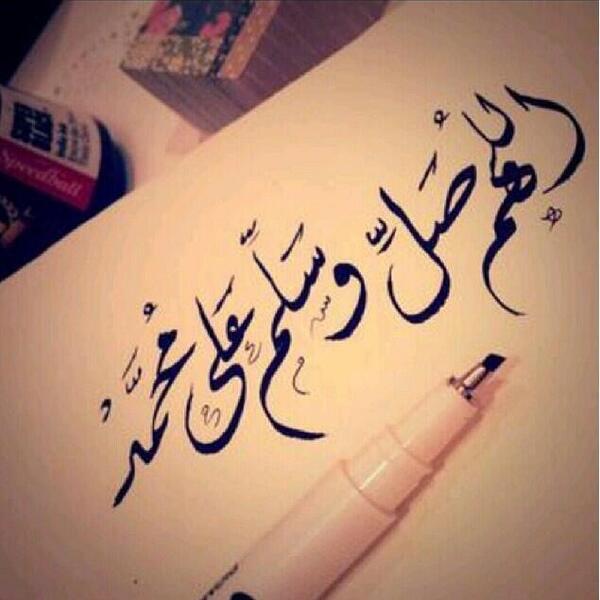 اللهم صَلِّ وَسَلِّم عَلَى مُحَمَّد
Speedball